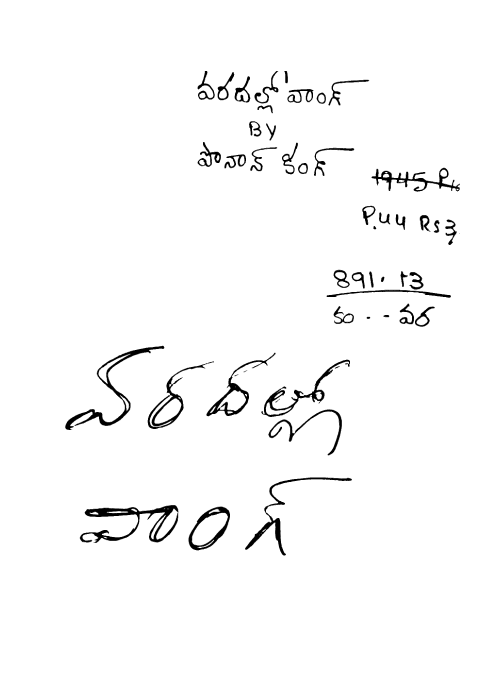 వరదల్లో వాంగ్
BY
పొనాన్ కింగ్
P.44 Rs 3
891.13
కం . . వర
వరదల్లో
వాంగ్